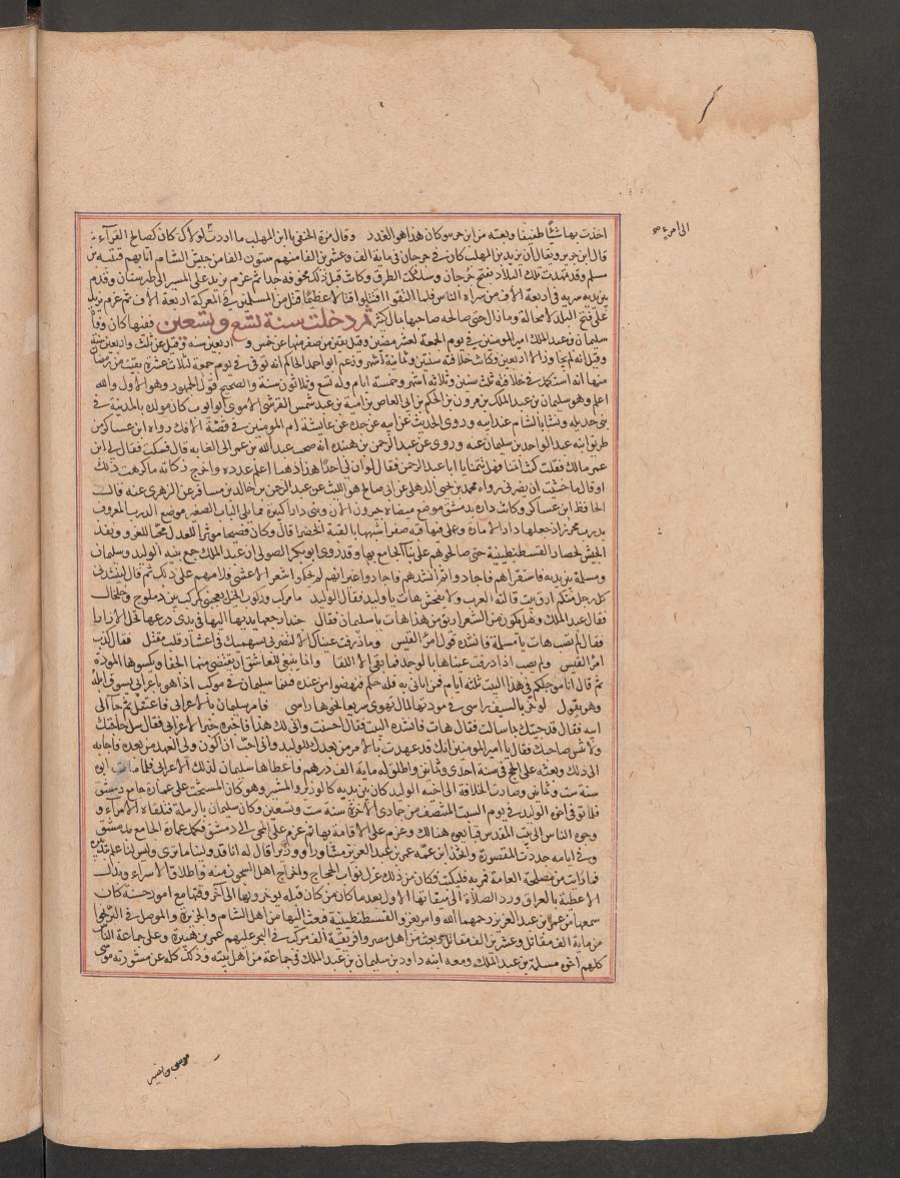 اخذت بها شيئا طفيفا وبعته من ابن حرسو كان هذا هو الغدر وقال مرة الحنفي يا ابن المهلب ما اردت لولاك كان كصالح القرآء
قال ابن جرير ويقال ان يزيد بن المهلب كان في جرجان في ماية الف وعشرين الفا منهم ستون الفا من جيش الشام اثابهم
مسلم وقد تمهدت تلك البلاد بفتح جرجان وسلكت الطرق وكانت قبل ذلك مخوفة جدا ثم عزم يزيد على المسير الى طبرستان وقدم
بين يديه سرية في اربعة الاف من سراة الناس فلما التقوا اقتتلوا قتالا عظيما قتل من المسلمين في المعركة اربعة الاف ثم عزم يزيد
على فتح البلاد لا محالة وما زال حتى صالحه صاحبها بمال كثير ثم دخلت سنة تسع وتسعين ففيها كان وفاة
سليمان بن عبد الملك امير المومنين في يوم الجمعة لعشر مضين وقيل بقين من صفر منها عن خمس واربعين سنة وقيل عن ثلث واربعين سنة
وقيل انه لم يجاوز الاربعين وكانت خلافته سنتين وثمانية اشهر وزعم ابو احمد الحاكم انه توفي في يوم جمعة لثلاث عشرة بقيت من رمضا
منها انه استكمل في خلافته ثلث سنين وثلاثة اشهر وخمسة ايام وله تسع وثلاثون سنة والصحيح قول الجمهور وهو الاول والله
اعلم وهو سليمان بن عبد الملك بن مرون بن الحكم بن ابي العاص بن امية بن عبد شمس القرشي الاموي ابو ايوب كان مولده بالمدينة في
بني حديله ونشا بالشام عند ابيه وروى الحديث عن ابيه عن جده عن عايشة ام المومنين في قصة الافك رواه ابن عساكر من
طريق ابنه عبد الواحد بن سليمان عنه وروى عن عبد الرحمن بن هنيده انه صحب عبد الله بن عمر الى الغابه قال فسكت فقال لي ابن
عمر مالك فقلت كنت اتمنا فقال فما تتمنا يا ابا عبد الرحمن فقال لو ان لي احدا هذا ذهبا اعلم عدده واخرج زكاته ما كرهت ذلك
او قال ما خشيت ان يضر بي رواه محمد بن يحيى الدهلي عن ابي صالح هو الليث عن عبد الرحمن بن خالد بن مسافر عن الزهري عنه قالـ
الحافظ ابن عساكر وكانت داره بدمشق موضع ميضاه جيرون الان وبنى دارا كبيرة مما يلي الباب الصغير موضع الدرب المعروف
بدرب محرز اذ جعلها دار الامارة وعمل فيها قبة صفرا تشبيها بالقبة الخضرا قال وكان فصيحا موثرا للعدل محبا للغزو ونفذ
الجيش لحصار القسطنطينية حتى صالحوهم على بنا الجامع بها وقد روى ابو بكر الصولي ان عبد الملك جمع بنيه الوليد وسليمان
ومسلمة بين يديه فاستقراهم فاجادوا ثم انشدهم فاجادوا غير انهم لم يحكموا شعر الاعشى فلامهم على ذلك ثم قال لينشدني
كل رجل منكم ارق بيت قالته العرب ولا يفحش هات يا وليد فقال الوليد ما مركب وركوب الخيل يعجبني كمركب بين دملوج وخلخال
فقال عبد الملك وهل يكون من الشعر ارق من هذا هات يا سليمان فقال حبذا رجعها يديها اليها في يدي درعها تحل الازارا
فقال لم تصب هات يا مسلمة فانشده قول امرء القيس وما ذرفت عيناك الا لتضربي بسهميك في اعشار قلب مقتل فقال كذب
امرء القيس ولم يصب اذا ذرفت عيناها بالوجد فما بقي الا اللقا وانما ينبغي للعاشق ان يقتضي منها الجفا ويكسوها المودة
ثم قال انا موجلكم في هذا البيت ثلثة ايام فمن اتاني به فله حكمه فنهضوا من عنده فبينما سليمان في موكب اذا هو باعرابي يسوق ابله
وهو يقول لو حز بالسيف راسي في مودتها لمال يهوي سريعا نحوها راسي فامر سليمان بالاعرابي فاعتقل ثم جا الى
ابيه فقال قد جيتك بما سالت فقال هات فانشده البيت فقال احسنت وانى لك هذا فاخبره خبر الاعرابي فقال سل حاجتك
ولا تنس صاحبك فقال يا امير المومنين انك قد عهدت بالامر من بعدك للوليد واني احب ان اكون ولي العهد من بعده فاجابه
الى ذلك وبعثه على الحج في سنة احدى وثمانين واطلق له ماية الف درهم فاعطاها سليمان لذلك الاعرابي فلما مات ابوه
سنة ست وثمانين وصارت الخلافة الى اخيه الوليد كان بين يديه كالوزير والمشير وهو كان المستحث على عمارة جامع دمشق
فلا توفي اخوه الوليد في يوم السبت المنتصف من جمادى الاخرة سنة ست وتسعين وكان سليمان بالرملة فتلقاه الامراء و
وجوه الناس الى بيت المقدس فبايعوه هنالك وعزم على الاقامة بها ثم عزم على المجي الى دمشق فكمل عمارة الجامع بدمشق
وفي ايامه جددت المقصورة واتخذ ابن عمه عمر بن عبد العزيز مشاورا ووزيرا وقال له انا قد ولينا ما ترى وليس لنا علم بتدبيره
فما رات من مصلحة العامة فمر به فليكتب فكان من ذلك عزل نواب الحجاج واخراج اهل السجون منه واطلاق الاسراء وبذل
الاعطية بالعراق ورد الصلاة الى ميقاتها الاول بعد ما كان من كان قبله يوخرونها الى آخر وقتها مع امور حسنة كان
سمعها من عمر بن عبد العزيز رحمهما الله وامر بغزو القسطنطينية فبعث اليها من اهل الشام والجزيرة والموصل في البر نحوا
من ماية الف مقاتل وعشرين الف مقاتل وبعث من اهل مصر وافريقية الف مركب في البحر عليهم عمر بن هبيرة وعلى جماعة الناس
كلهم اخوه مسلمة بن عبد الملك ومعه ابنه داود بن سليمان بن عبد الملك في جماعة من اهل بيته وذلك كله عن مشورته موسى
موسى بن نصير